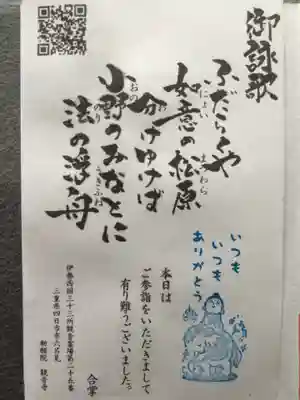 御詠歌
ふだらくや
如意の松原
にょい
分けゆけば
小野のみなとに
おの
法の浮舟
のり
うきふね
いつも
いつも
ありがとう
本日は
ご参詣をいただきまして
有り難うございました。
合掌
伊勢西国三十三所観音霊場第二十五番
三重県四日市市六呂見
観音寺